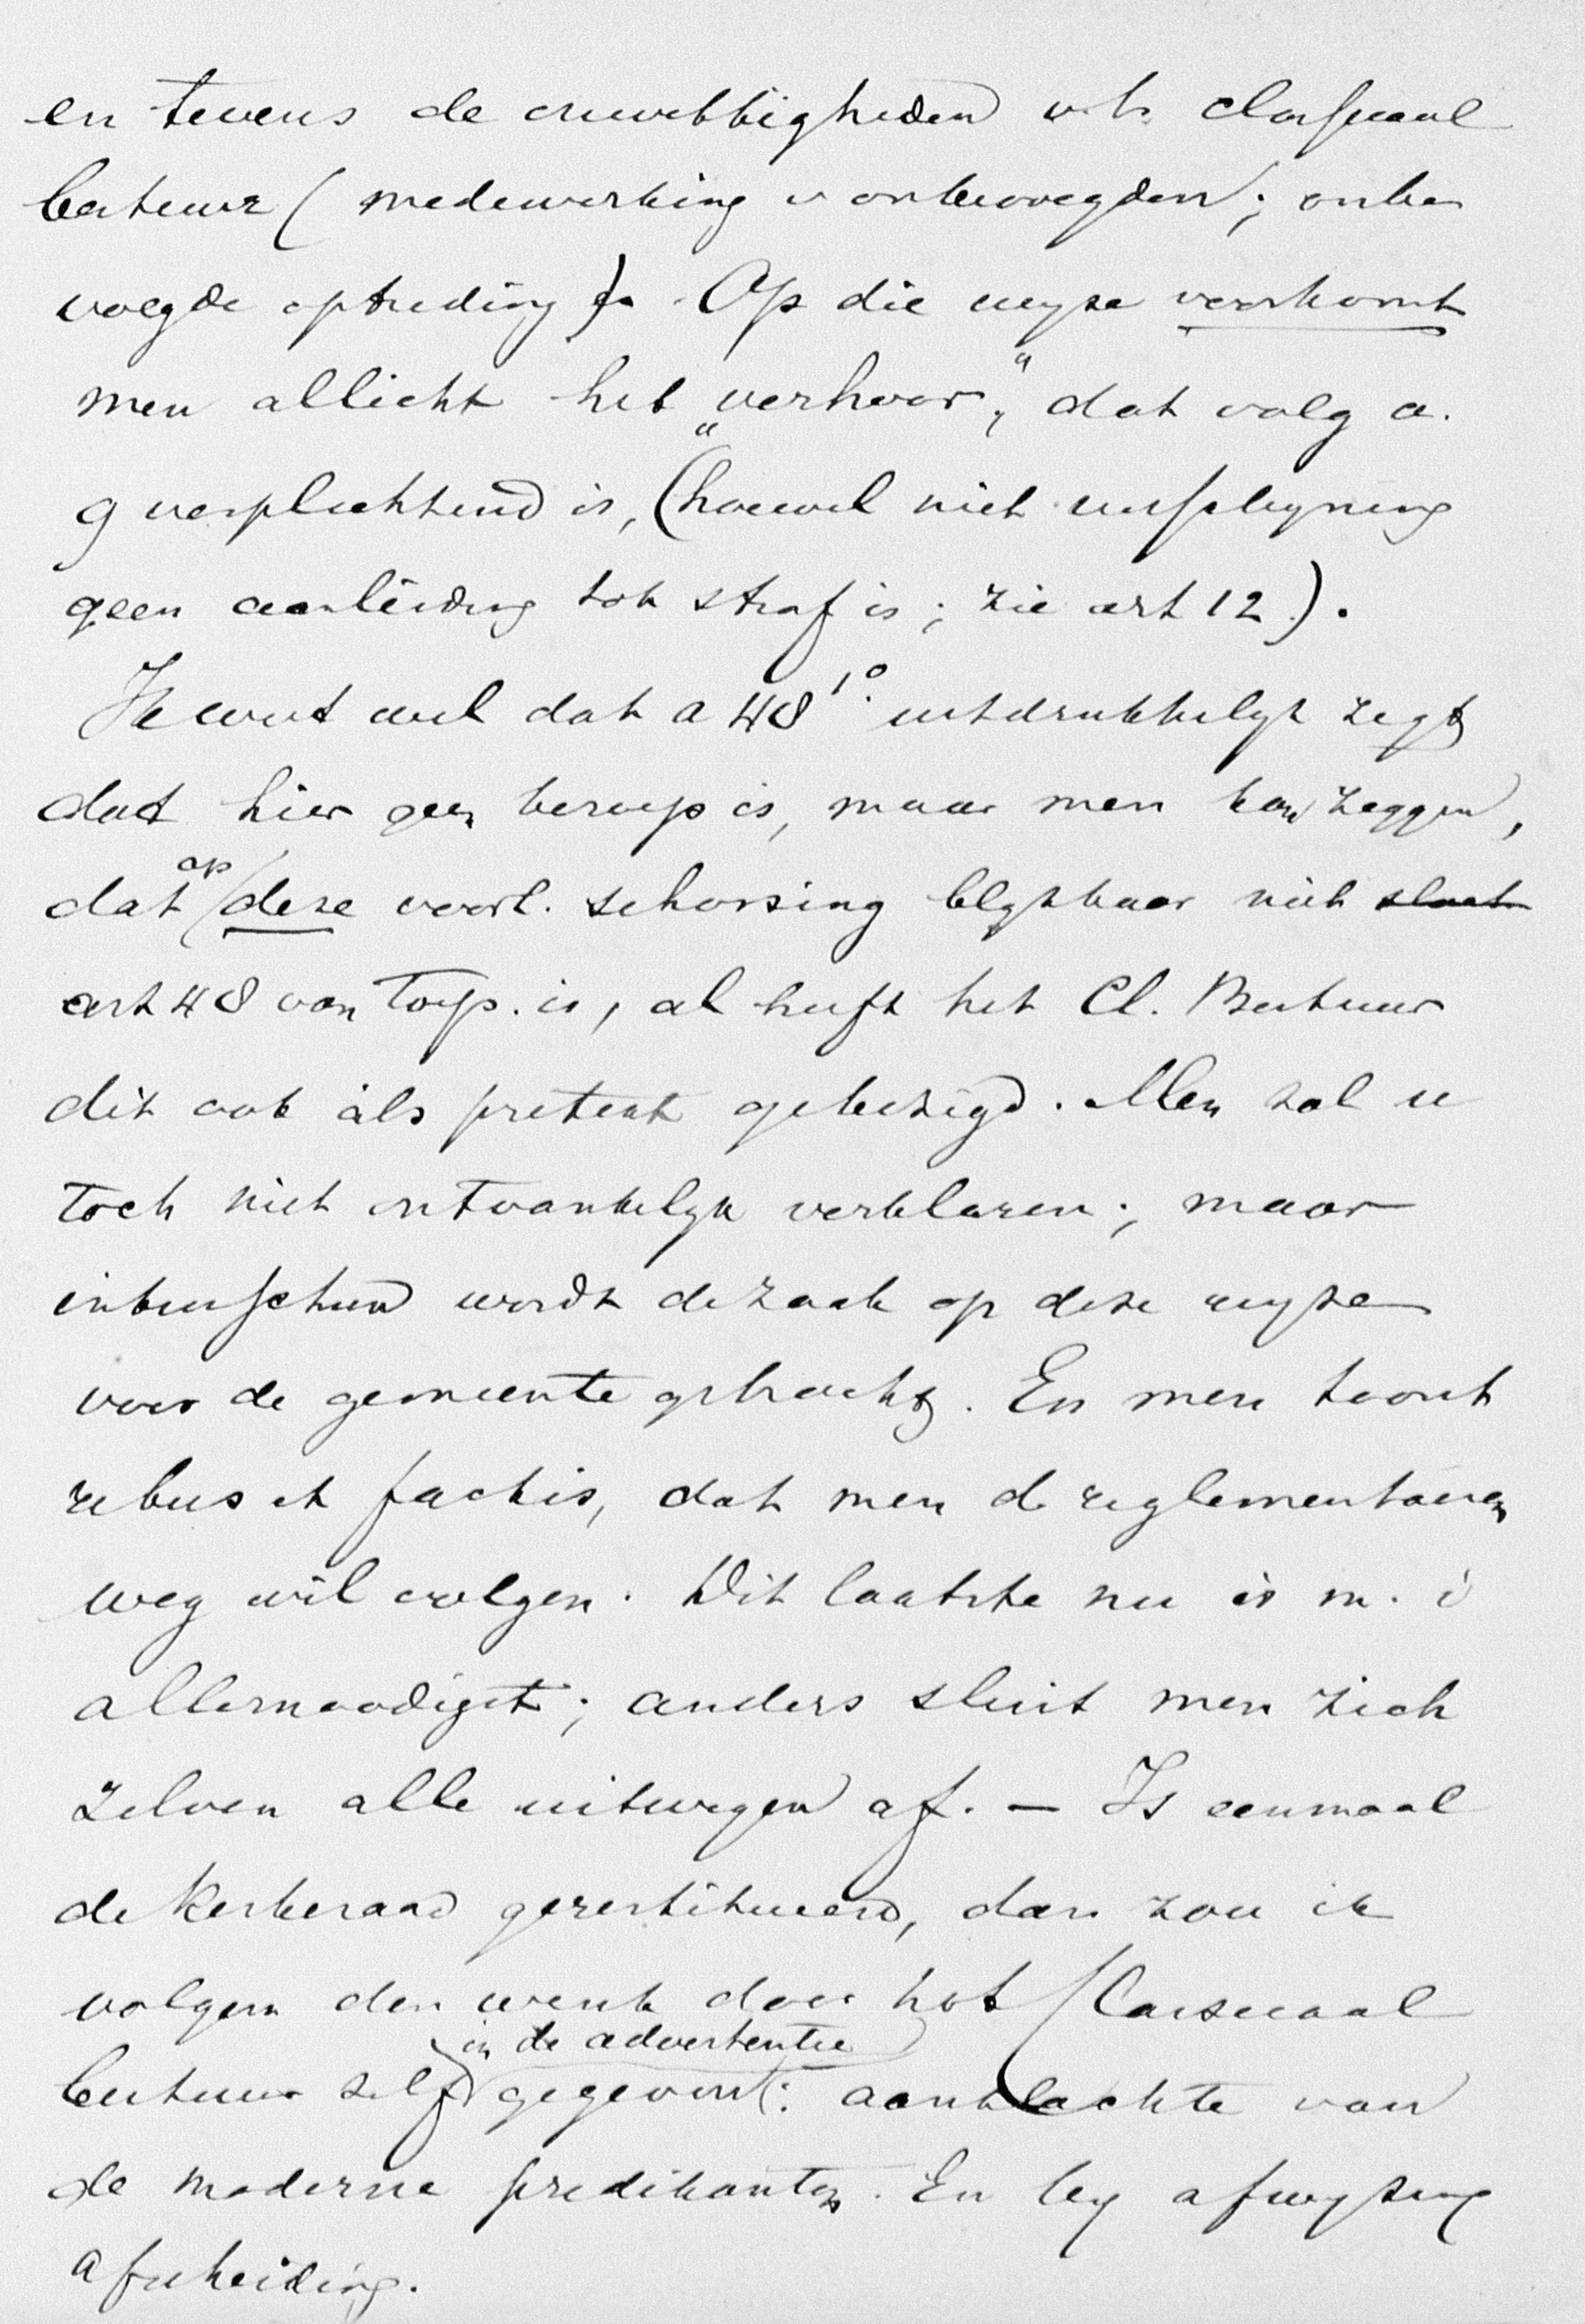 en tevens de onwettigheden v.h. classicaal
bestuur (medewerking v onbevoegden; onbe
voegde optreding). Op die wyze voorkomt
men allicht het „verhoor," dat volg a.
9 verplichtend is, (hoewel niet verschyning
geen aanleiding tot straf is; zie art 12).
Ik weet wel dat a 48 1o. uitdrukkelyk zegt
dat hier geen beroep is, maar men kan zeggen,
dat op deze voorl. schorsing blykbaar niet slaat
art 48 van toep. is, al heeft het Cl. Bestuur
dit ook als pretext gebezigd. Men zal u
toch niet ontvankelyk verklaren; maar
intusschen wordt de zaak op deze wyze
voor de gemeente gebracht. En men toont
rebus et factis, dat men de reglementairen
weg wil volgen. Dit laatste nu is m. i
allernoodigst; anders sluit men zich
zelven alle uitwegen af. — Is eenmaal
de Kerkeraad gerestitueerd, dan zou ik
volgen den wenk door het Classicaal
bestuur zelf in de advertentie gegeven: aanklachte van
de moderne predikanten. En by afwyzing
afscheiding.